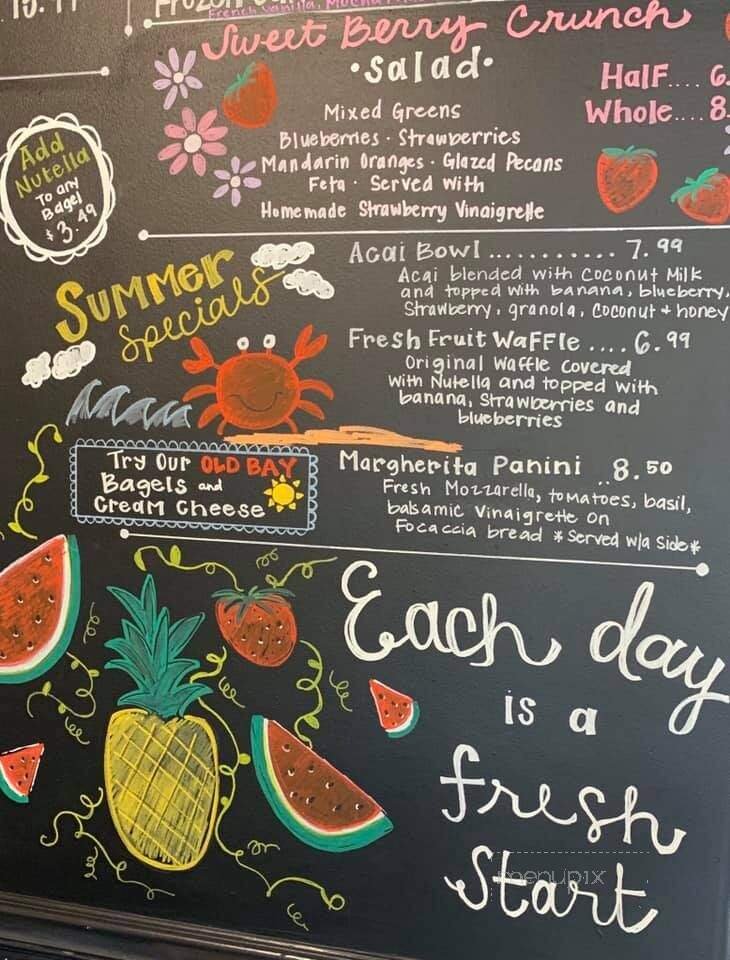 Frozen
French Vanilla, Mocha
Sweet Berry Crunch
•Salad•
Half.... 6.
Whole.... 8.
Mixed Greens
Blueberries · Strawberries
Mandarin Oranges · Glazed Pecans
Feta · Served With
Homemade Strawberry Vinaigrette
Add
Nutella
To any
Bagel
$3.49
Summer
Specials
Acai Bowl........... 7.99
Acai blended with Coconut Milk
and topped with banana, blueberry,
Strawberry, granola, Coconut + honey
Fresh Fruit Waffle .... 6.99
Original Waffle Covered
With Nutella and topped with
banana, Strawberries and
blueberries
Try Our OLD BAY
Bagels and
Cream Cheese
Margherita Panini ..8.50
Fresh Mozzarella, tomatoes, basil,
balsamic Vinaigrette on
Focaccia bread *Served w/a Side*
Each day
is a
fresh
Start
menupix